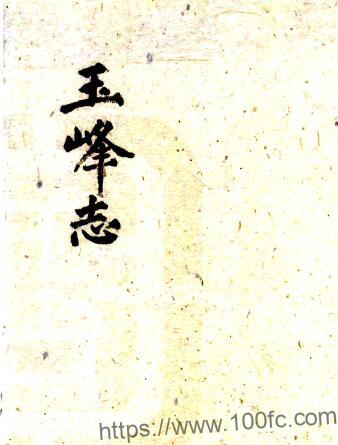 玉峰志
https://www.100fc.com